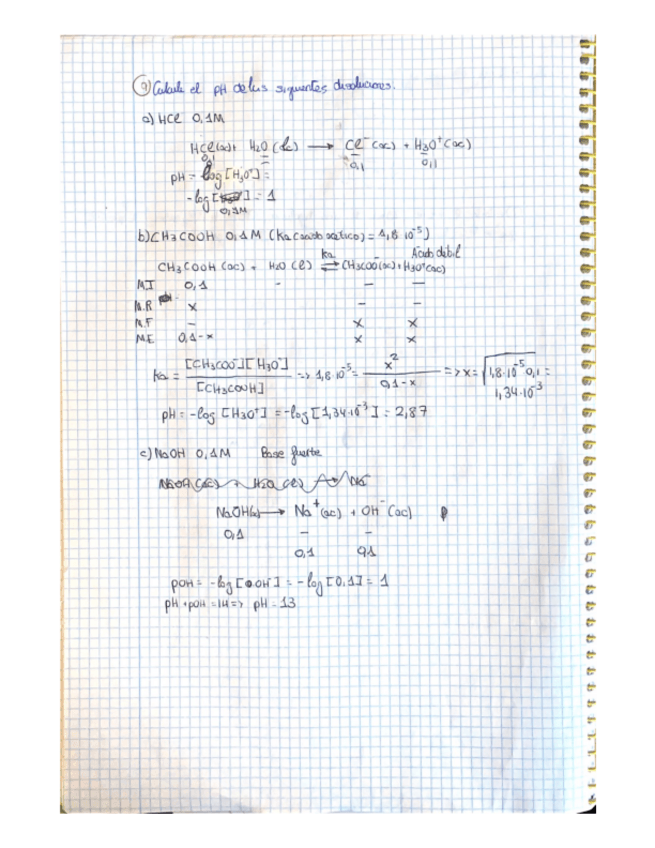 9) Calcule el pH de las siguientes disoluciones.
a) HCl 0,1M
HCl(ac) + H2O (l) ⟶ Cl⁻ (ac) + H3O⁺ (ac)
0,1 0,1 0,1
pH = log [H3O⁺] =
-log [ ] = 1
0,1M
b) CH3COOH 0,1M (Ka (ácido acético) = 1,8 10⁻⁵)
Ka Ácido débil
CH3COOH (ac) + H2O (l) ⇌ CH3COO⁻(ac) + H3O⁺(ac)
M.I 0,1 - - -
M.R x - -
M.F - x x
M.E 0,1-x x x
Ka = [CH3COO⁻][H3O⁺] / [CH3COOH] => 1,8·10⁻⁵ = x² / 0,1-x => x = √1,8·10⁻⁵ 0,1 =
1,34·10⁻³
pH = -log [H3O⁺] = -log [1,34·10⁻³] = 2,87
c) NaOH 0,1M Base fuerte
NaOH(ac) + H2O (l) ⟶ Na
NaOH(ac) ⟶ Na⁺ (ac) + OH⁻ (ac)
0,1 - -
0,1 0,1
pOH = -log [OH⁻] = -log [0,1] = 1
pH + pOH = 14 => pH = 13